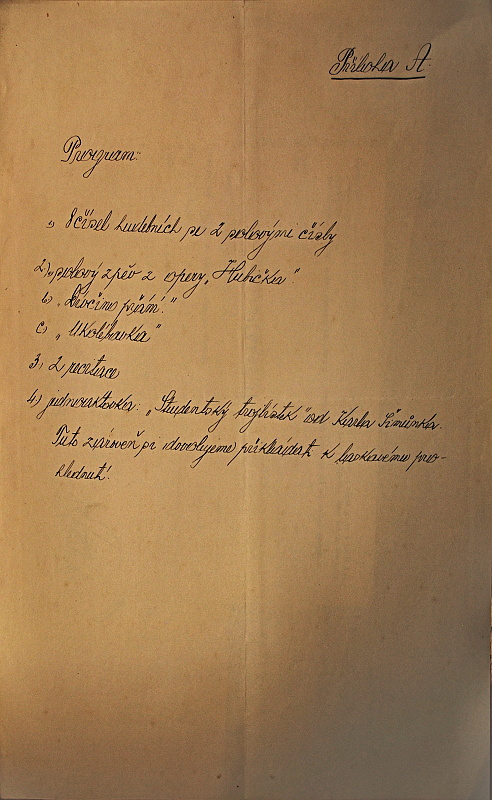 Příloha A.
Program:
1) 8 čísel hudebních se 2 solovými čísly
2) a) solový zpěv z opery „Hubička"
b) „Děvčino přání."
c) „Ukolébavka"
3) 2 recitace
4) jednoaktovka: „Studentský trojlístek" od Karla Šimůnka.
Tuto zároveň si dovolujeme přikládati k laskavému pro-
hlédnutí.